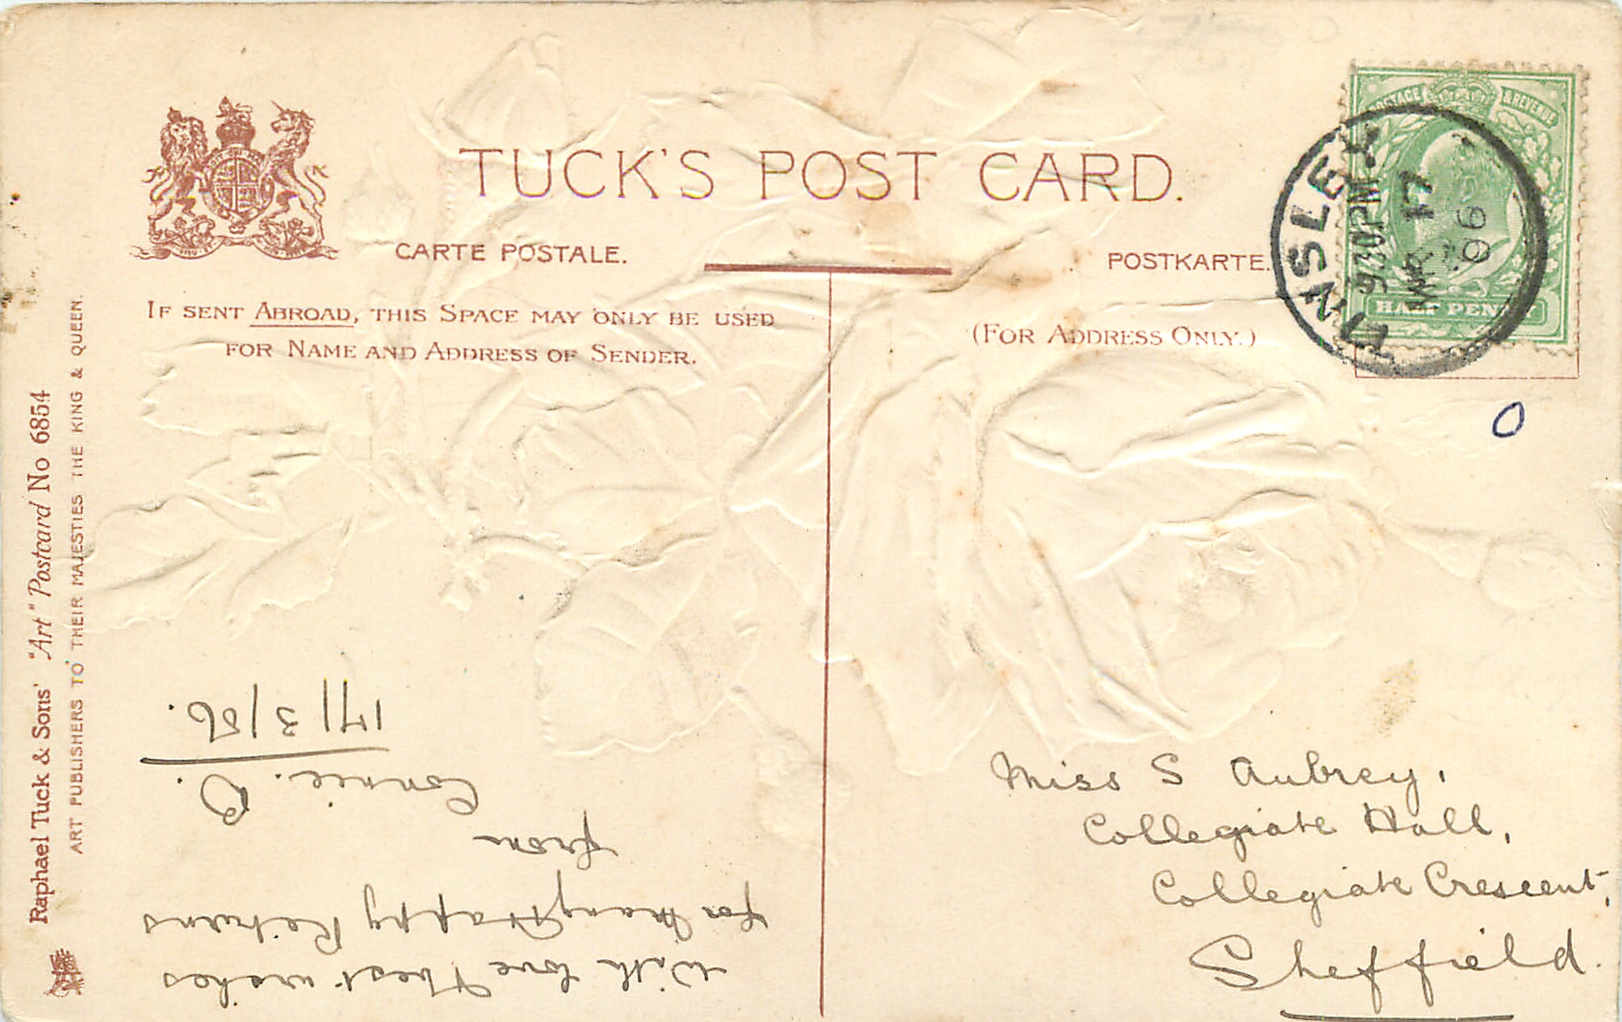 TUCK'S POST CARD.
CARTE POSTALE.
POSTKARTE.
IF SENT ABROAD, THIS SPACE MAY ONLY BE USED
FOR NAME AND ADDRESS OF SENDER.
(FOR ADDRESS ONLY.)
POSTAGE & REVENUE
HALF PENNY
TINSLEY
9.30PM
MR 17
06
O
Raphael Tuck & Sons' "Art" Postcard No 6854
ART PUBLISHERS TO THEIR MAJESTIES THE KING & QUEEN.
With love & best wishes
for Many Happy Returns
from
Connie. O.
17/3/06.
Miss S Aubrey,
Collegiate Hall,
Collegiate Crescent,
Sheffield.